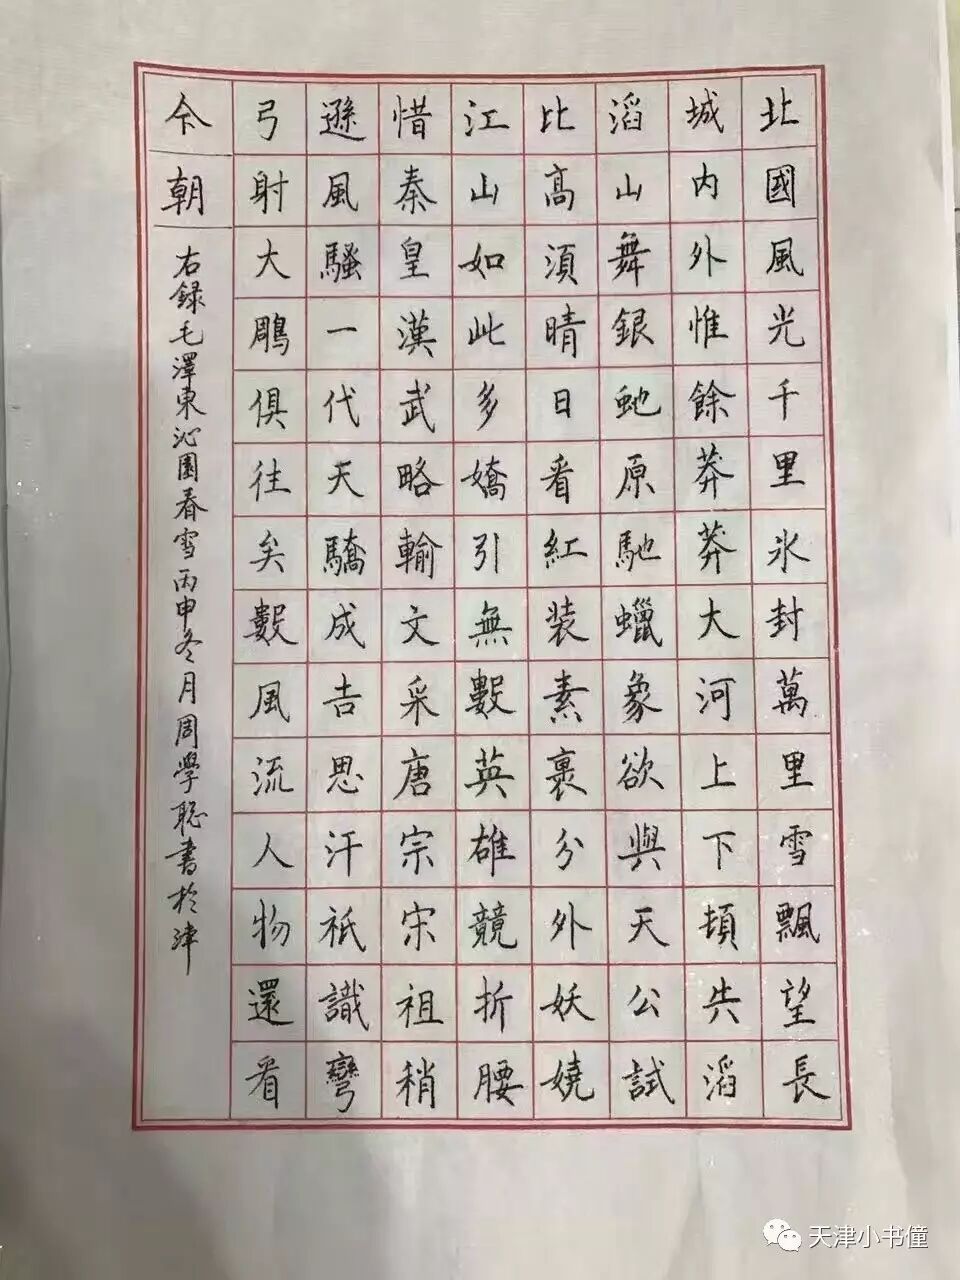 北國風光千里氷封萬里雪飄望長
城内外惟餘莽莽大河上下頓失滔
滔山舞銀虵原馳蠟象欲與天公試
比髙湏晴日看紅装素裹分外妖嬈
江山如此多嬌引無數英雄競折腰
惜秦皇漢武略輸文采唐宗宋祖稍
遜風騷一代天驕成吉思汗祇識彎
弓射大鵰俱往矣數風流人物還看
今朝
右録毛澤東沁園春雪丙申冬月周學聡書於津
天津小书僮